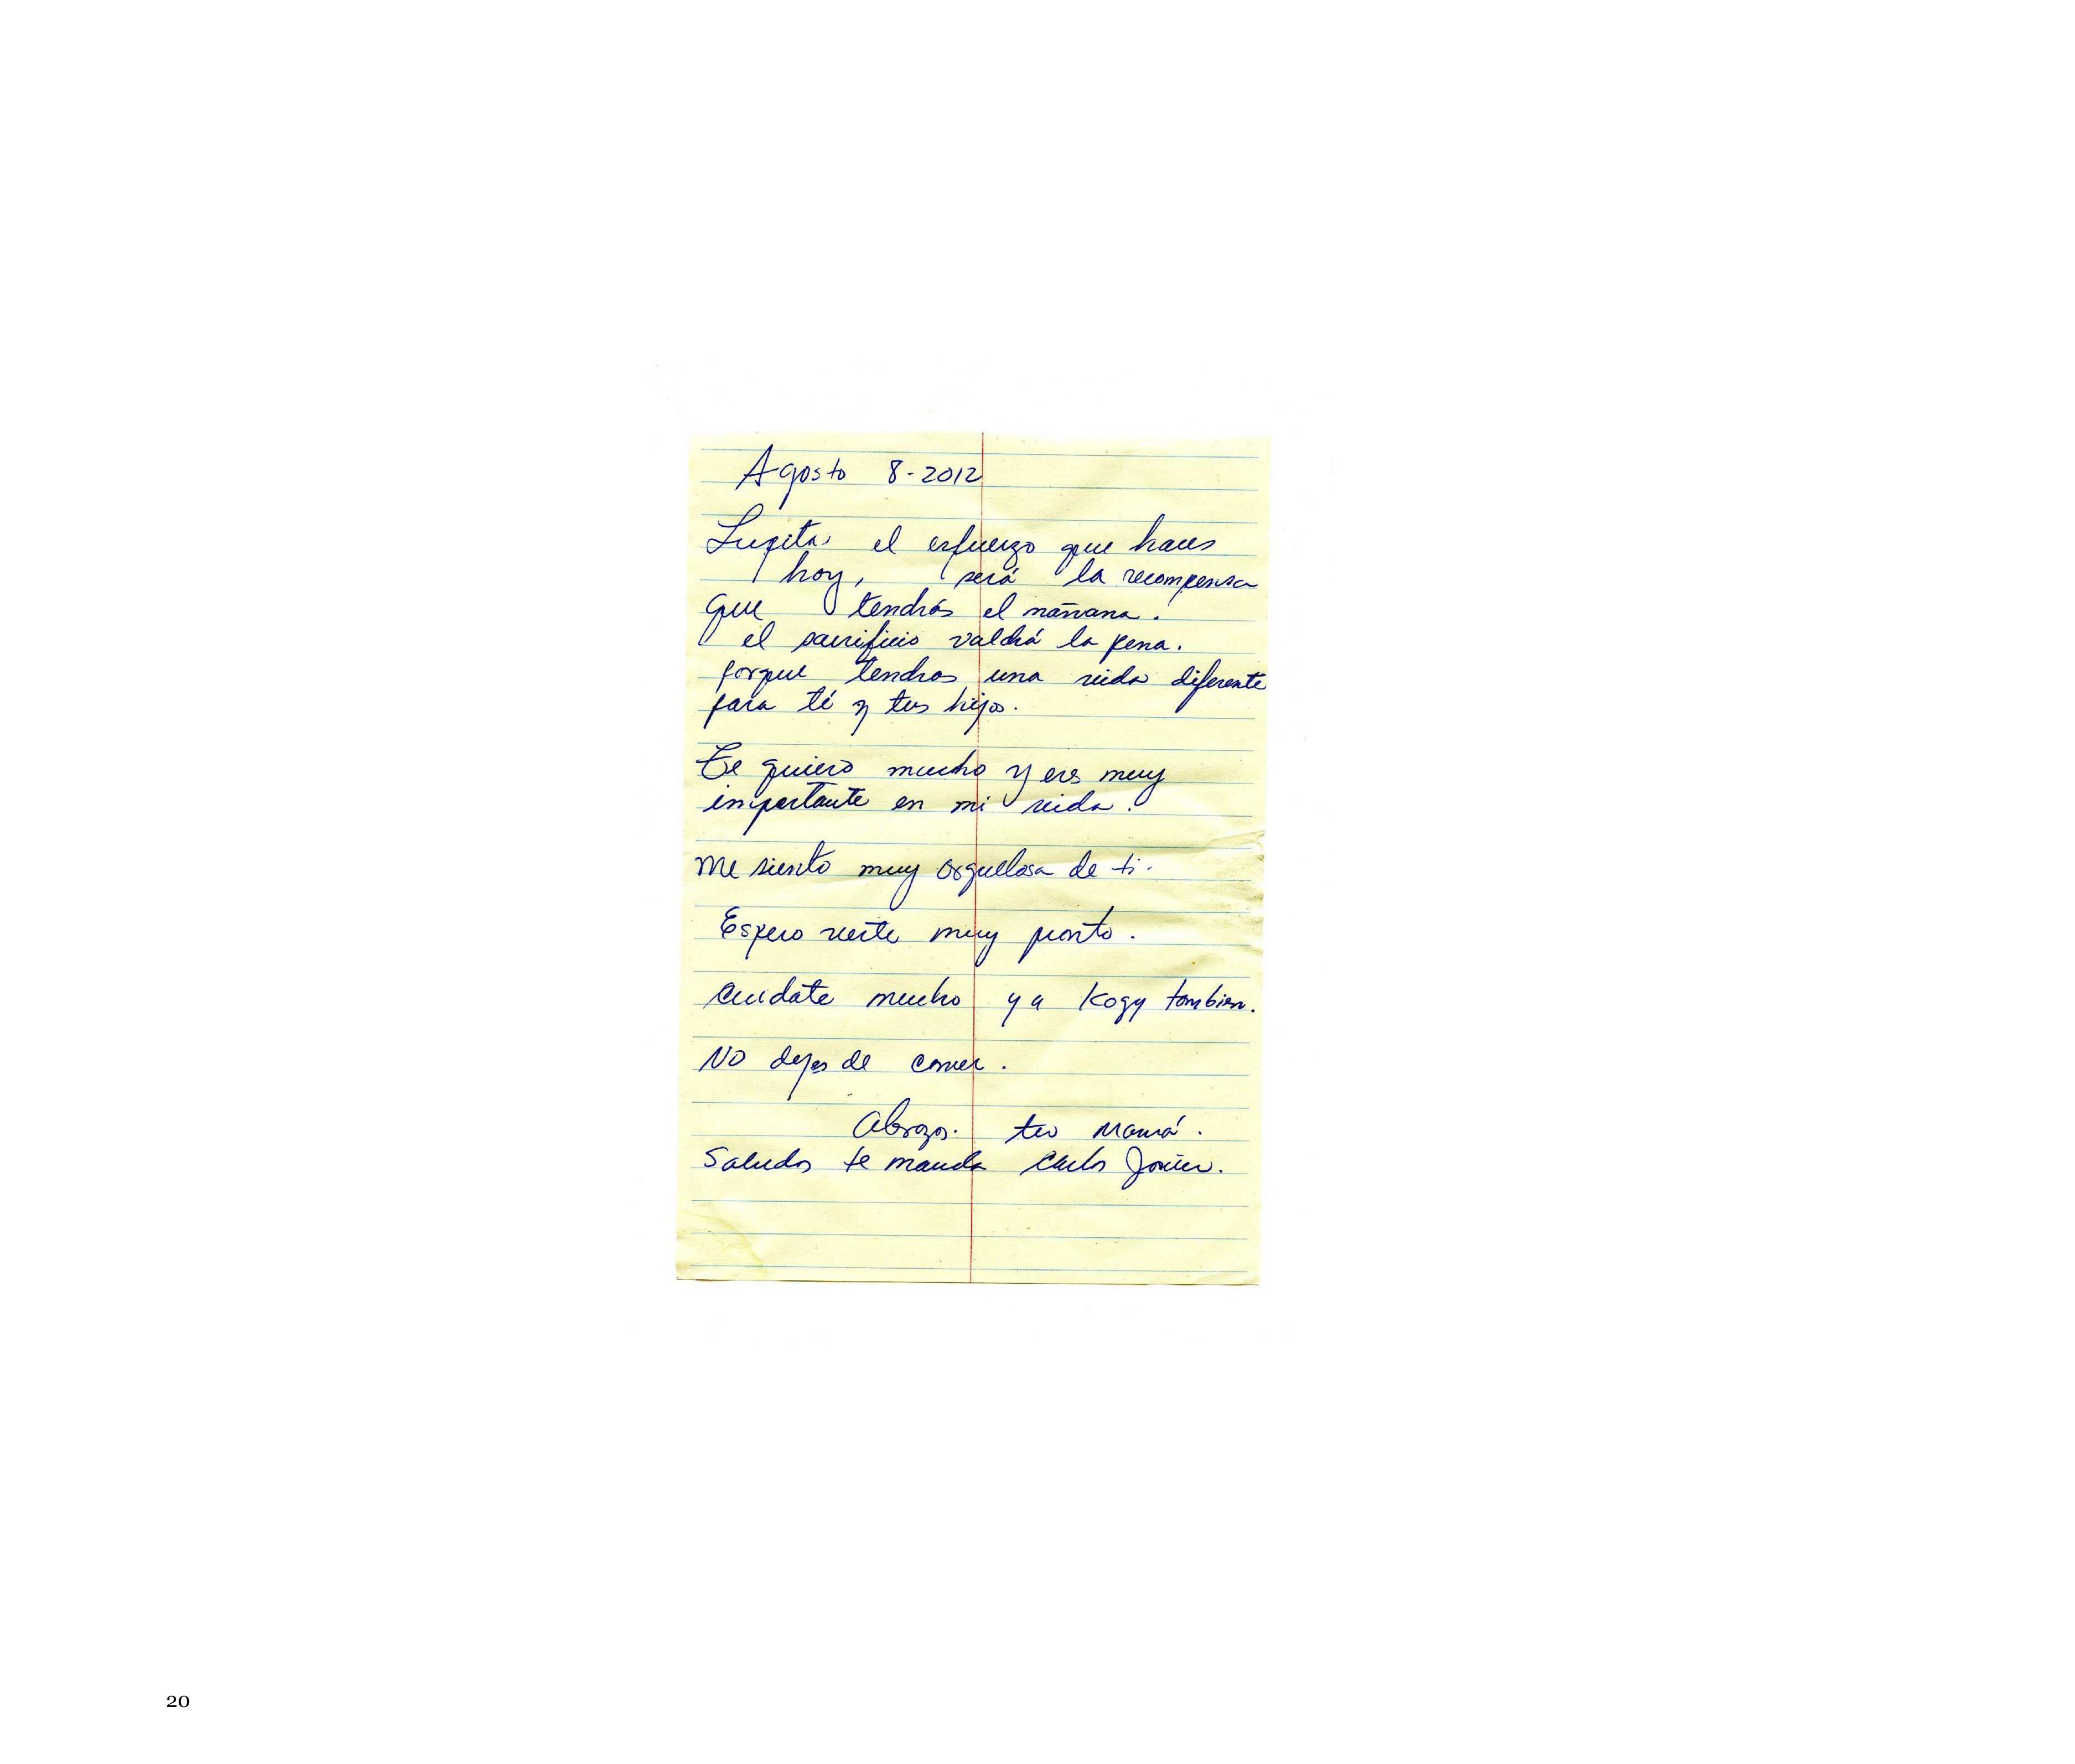 Agosto 8-2012
Lupita, el esfuerzo que haces
hoy, será la recompensa
que tendrás el mañana.
el sacrificio valdrá la pena.
porque tendras una vida diferente
para tí y tus hijos.
Te quiero mucho y eres muy
importante en mi vida.
Me siento muy orgullosa de ti.
Espero verte muy pronto.
Cuidate mucho y a Kogy tambien.
No dejes de comer.
Abrazos. tu Mamá.
Saludos te manda Carlos Javier.
20